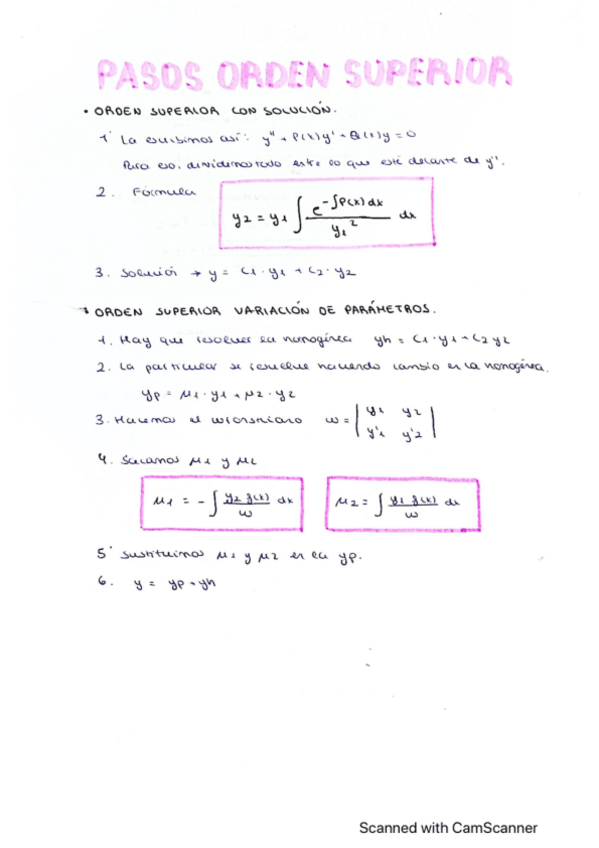 PASOS ORDEN SUPERIOR
• ORDEN SUPERIOR CON SOLUCIÓN.
1. La escribimos así: y'' + P(x)y' + Q(x)y = 0
Para eso, dividimos todo entre lo que esté delante de y''.
2. Fórmula y2 = y1 ∫ e^-∫P(x)dx / y1² dx
3. Solución → y = C1·y1 + C2·y2
• ORDEN SUPERIOR VARIACIÓN DE PARÁMETROS.
1. Hay que resolver la homogénea yh = C1·y1 + C2 y2
2. La particular se resuelve haciendo cambio en la homogénea.
yp = μ1·y1 + μ2·y2
3. Hacemos el wronskiano w = | y1 y2 |
| y'1 y'2 |
4. Sacamos μ1 y μ2
μ1 = - ∫ y2 g(x) / w dx μ2 = ∫ y1 g(x) / w dx
5. Sustituimos μ1 y μ2 en la yp.
6. y = yp + yh
Scanned with CamScanner